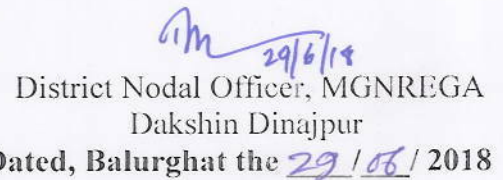 29/6/18
District Nodal Officer, MGNREGA
Dakshin Dinajpur
Dated, Balurghat the 29 / 06 / 2018